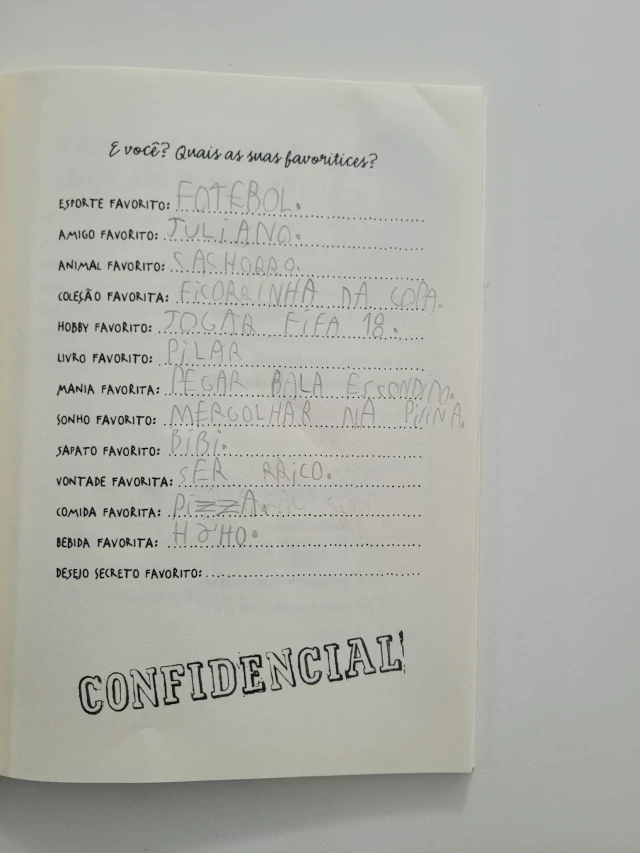 E você? Quais as suas favoritices?
ESPORTE FAVORITO: FOTEBOL.
AMIGO FAVORITO: JULIANO.
ANIMAL FAVORITO: CACHORRO.
COLEÇÃO FAVORITA: FICORRINHA DA COPA.
HOBBY FAVORITO: JOGAR FIFA 18.
LIVRO FAVORITO: PILAR
MANIA FAVORITA: PEGAR BALA ESCONDIDO.
SONHO FAVORITO: MERGOLHAR NA PISINA.
SAPATO FAVORITO: BIBI.
VONTADE FAVORITA: SER RRICO.
COMIDA FAVORITA: PIZZA.
BEBIDA FAVORITA:
DESEJO SECRETO FAVORITO:
CONFIDENCIAL!